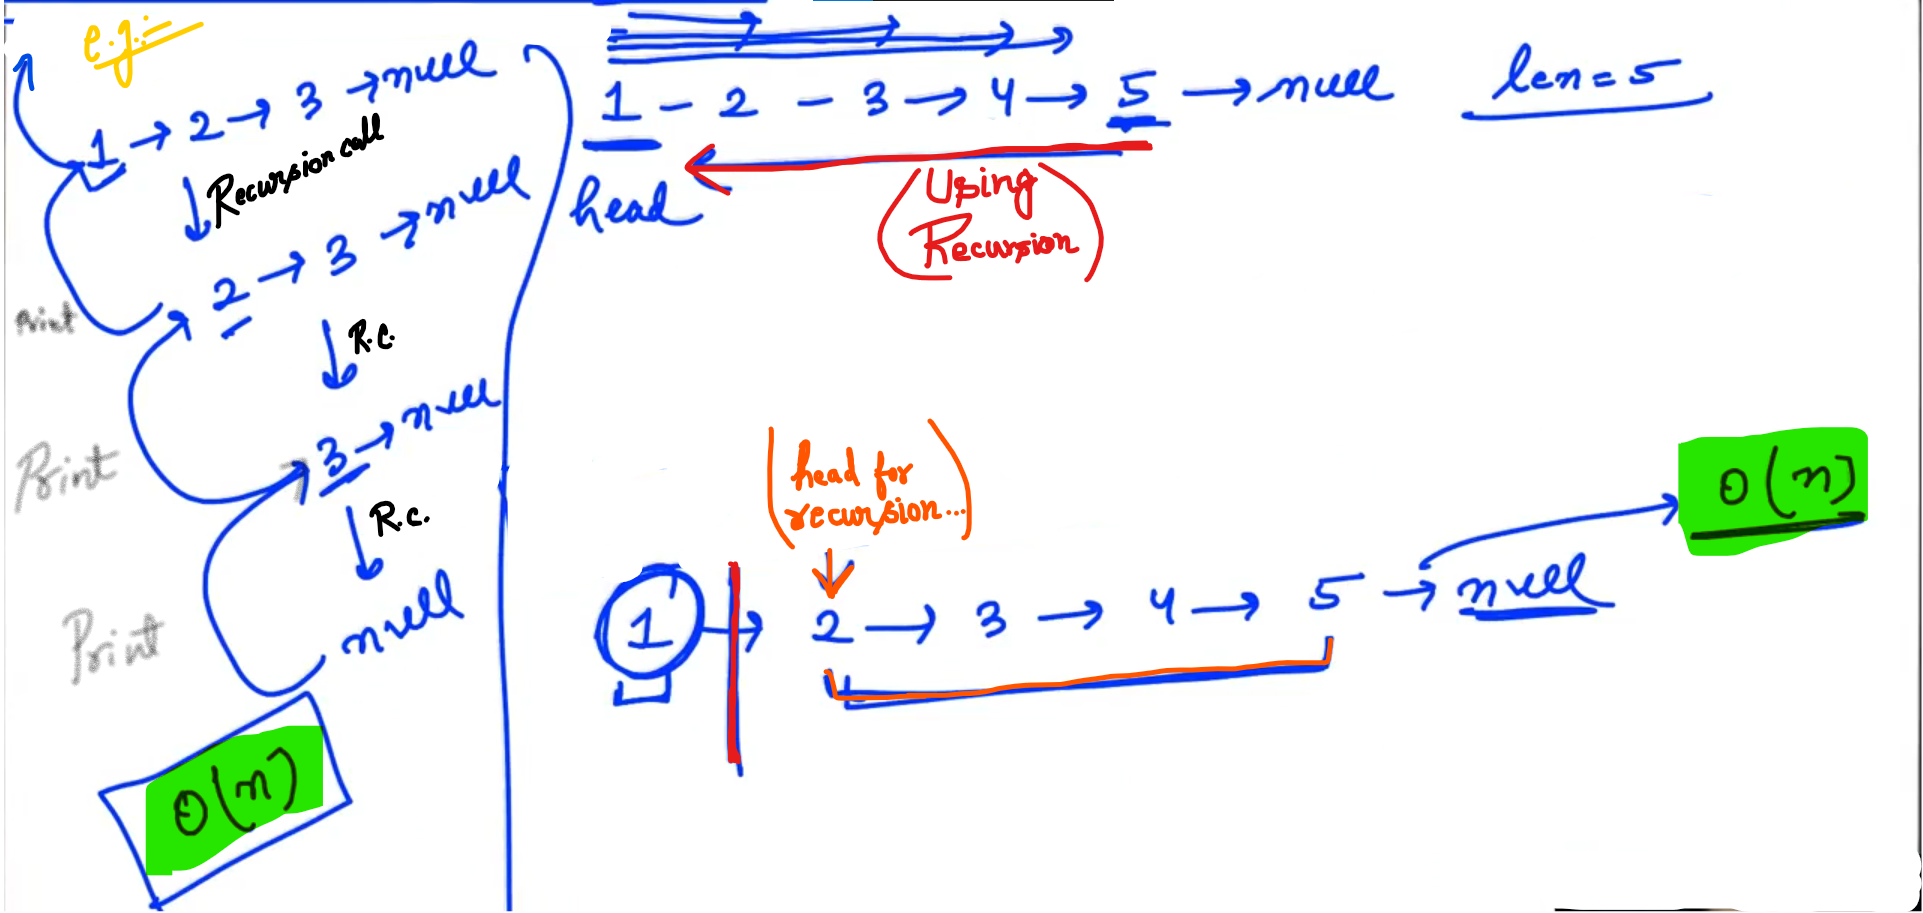 e.g:-
1 → 2 → 3 → null
Recursion call
2 → 3 → null
Print
R.C.
3 → null
Print
R.c.
null
Print
O(n)
1 - 2 - 3 → 4 → 5 → null
len = 5
head
(Using
Recursion)
(head for
recursion...)
1 → 2 → 3 → 4 → 5 → null
O(n)